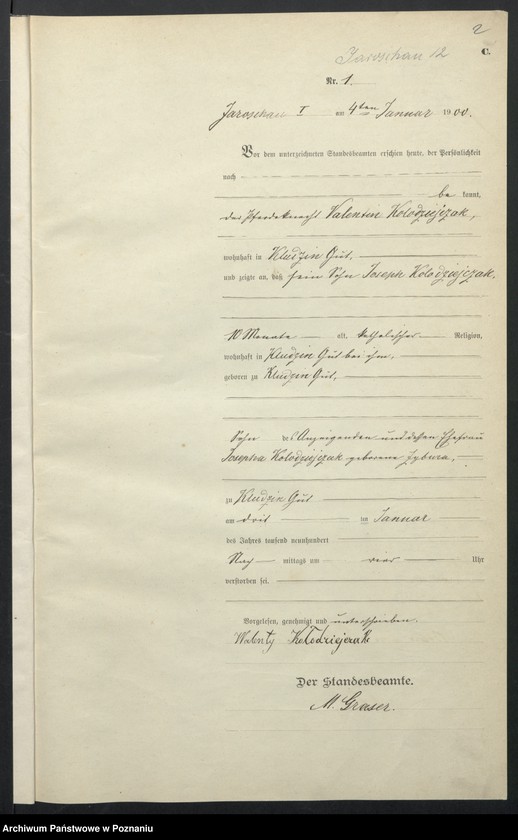 2
Jaroschau 12
C.
Nr. 1.
Jaroschau I am 4ten Januar 1900.
Vor dem unterzeichneten Standesbeamten erschien heute, der Persönlichkeit
nach
be kannt,
der Pferdeknecht Valentin Kolodziejczak,
wohnhaft in Kludzin Gut,
und zeigte an, daß sein Sohn Joseph Kolodziejczak,
10 Monate alt, katholischer Religion,
wohnhaft in Kludzin Gut bei ihm,
geboren zu Kludzin Gut,
Sohn des Anzeigenden und dessen Ehefrau
Josepha Kolodziejczak geborene
zu Kludzin Gut
am drei ten Januar
des Jahres tausend neunhundert
Nach mittags um vier Uhr
verstorben sei.
Vorgelesen, genehmigt und unterschrieben.
Walenty Kołodziejczak
Der Standesbeamte.
M. Graser.
Archiwum Państwowe w Poznaniu
Archiwum Państwowe w Poznaniu